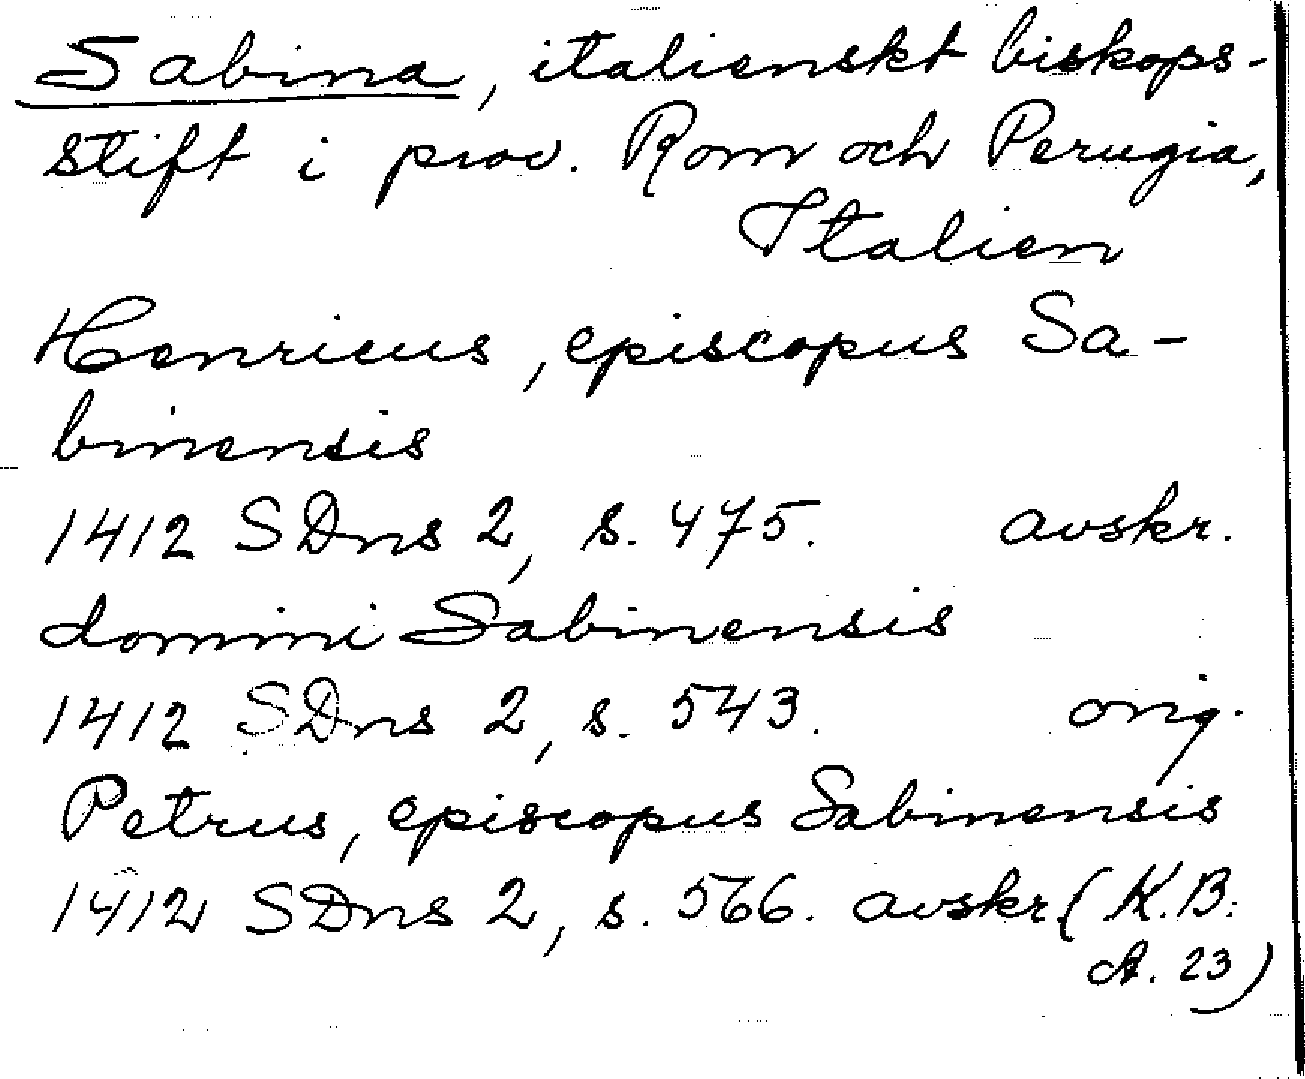 Sabina, italienskt biskops-
stift i prov. Rom och Perugia,
Italien
Henricus, episcopus Sa-
binensis
1412 SDns 2, s. 475. avskr.
domini Sabinensis
1412 SDns 2, s. 543. orig.
Petrus, episcopus Sabinensis
1412 SDns 2, s. 566. avskr (K.B:
A. 23)